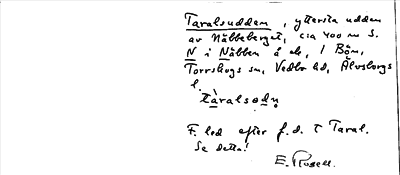 Taralsudden, yttersta udden
av Näbbeberget, ca 400 m S.
N i Näbben å ek, / Bön,
Torrskogs sn, Vedbo hd, Älvsborgs
l.
tàralsɷdn̥
F. led efter f.d. t Taral.
Se detta!
E. Rosell.